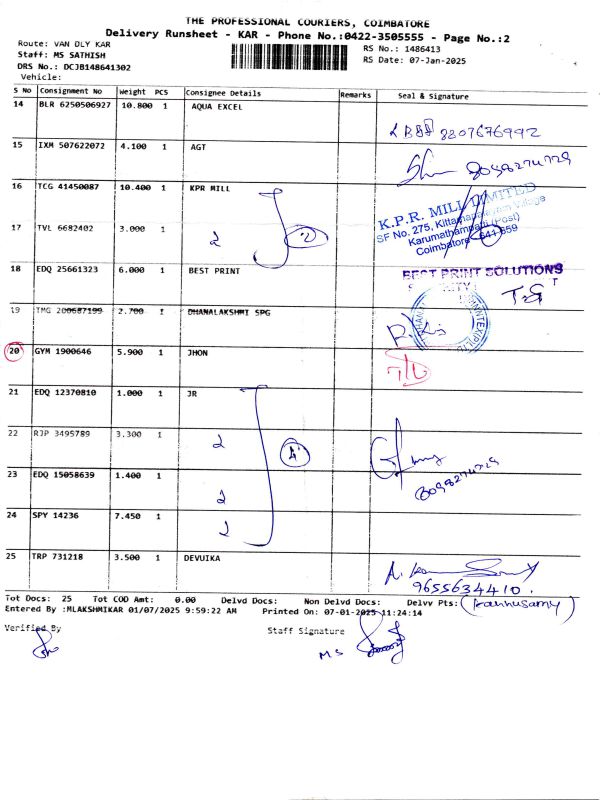 THE PROFESSIONAL COURIERS, COIMBATORE
Delivery Runsheet - KAR - Phone No.:0422-3505555 - Page No.:2
Route: VAN DLY KAR
RS No.: 1486413
Staff: MS SATHISH
RS Date: 07-Jan-2025
DRS No.: DCJB148641302
Vehicle:
S No Consignment No Weight PCS Consignee Details Remarks Seal & Signature
14 BLR 6250506927 10.800 1 AQUA EXCEL
8807676992
15 IXM 507622072 4.100 1 AGT
8098274729
16 TCG 41450087 10.400 1 KPR MILL
K.P.R. MILL LIMITED
SF No. 275, Kittampalayam Village
Karumathampatti (Post)
Coimbatore - 641 659
17 TVL 6682402 3.000 1
2
18 EDQ 25661323 6.000 1 BEST PRINT
BEST PRINT SOLUTIONS
19 TMG 200687199 2.700 1 DHANALAKSHMI SPG
20 GYM 1900646 5.900 1 JHON
21 EDQ 12370810 1.000 1 JR
22 RJP 3495789 3.300 1
4
23 EDQ 15058639 1.400 1
8098274729
24 SPY 14236 7.450 1
25 TRP 731218 3.500 1 DEVUIKA
9655634410
Tot Docs: 25 Tot COD Amt: 0.00 Delvd Docs: Non Delvd Docs: Delvv Pts: (kannusamy)
Entered By :MLAKSHMIKAR 01/07/2025 9:59:22 AM Printed On: 07-01-2025 11:24:14
Verified By
Staff Signature
MS